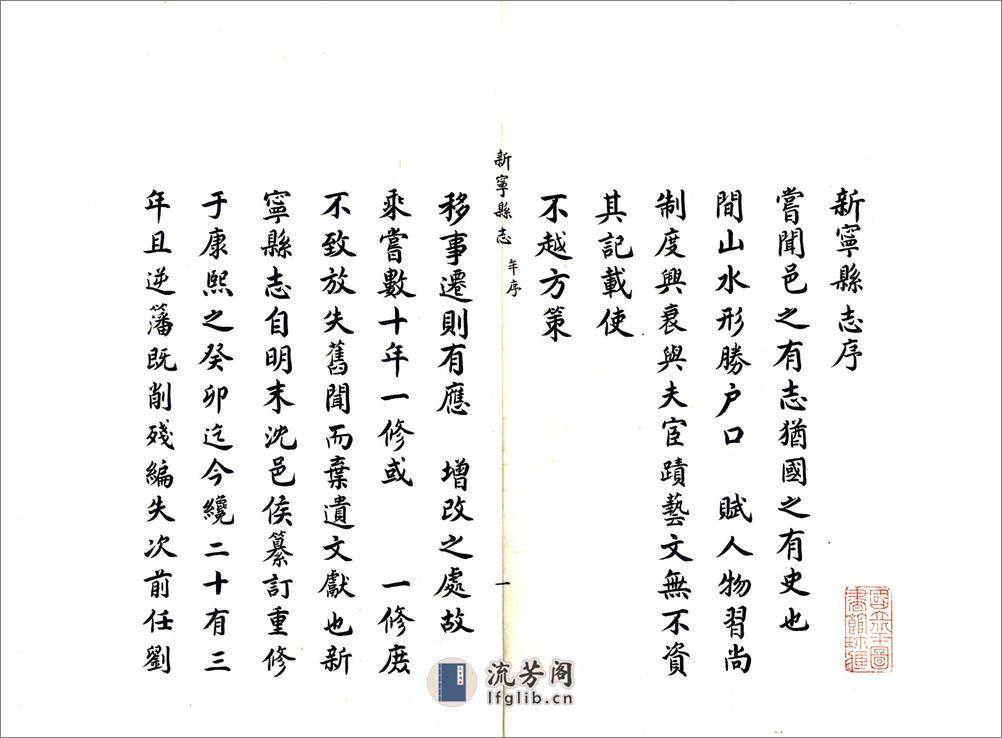 新寧縣志序
嘗聞邑之有志猶國之有史也
間山水形勝户口　賦人物習尚
制度興衰與夫宦蹟藝文無不資
其記載使
不越方策
新寧縣志　年序　一
移事遷則有應　增改之處故
乘嘗數十年一修或　　一修庶
不致放失舊聞而棄遺文獻也新
寧縣志自明末沈邑侯纂訂重修
于康熙之癸卯迄今纔二十有三
年且逆籓既削殘編失次前任劉
流芳阁
lfglib.cn